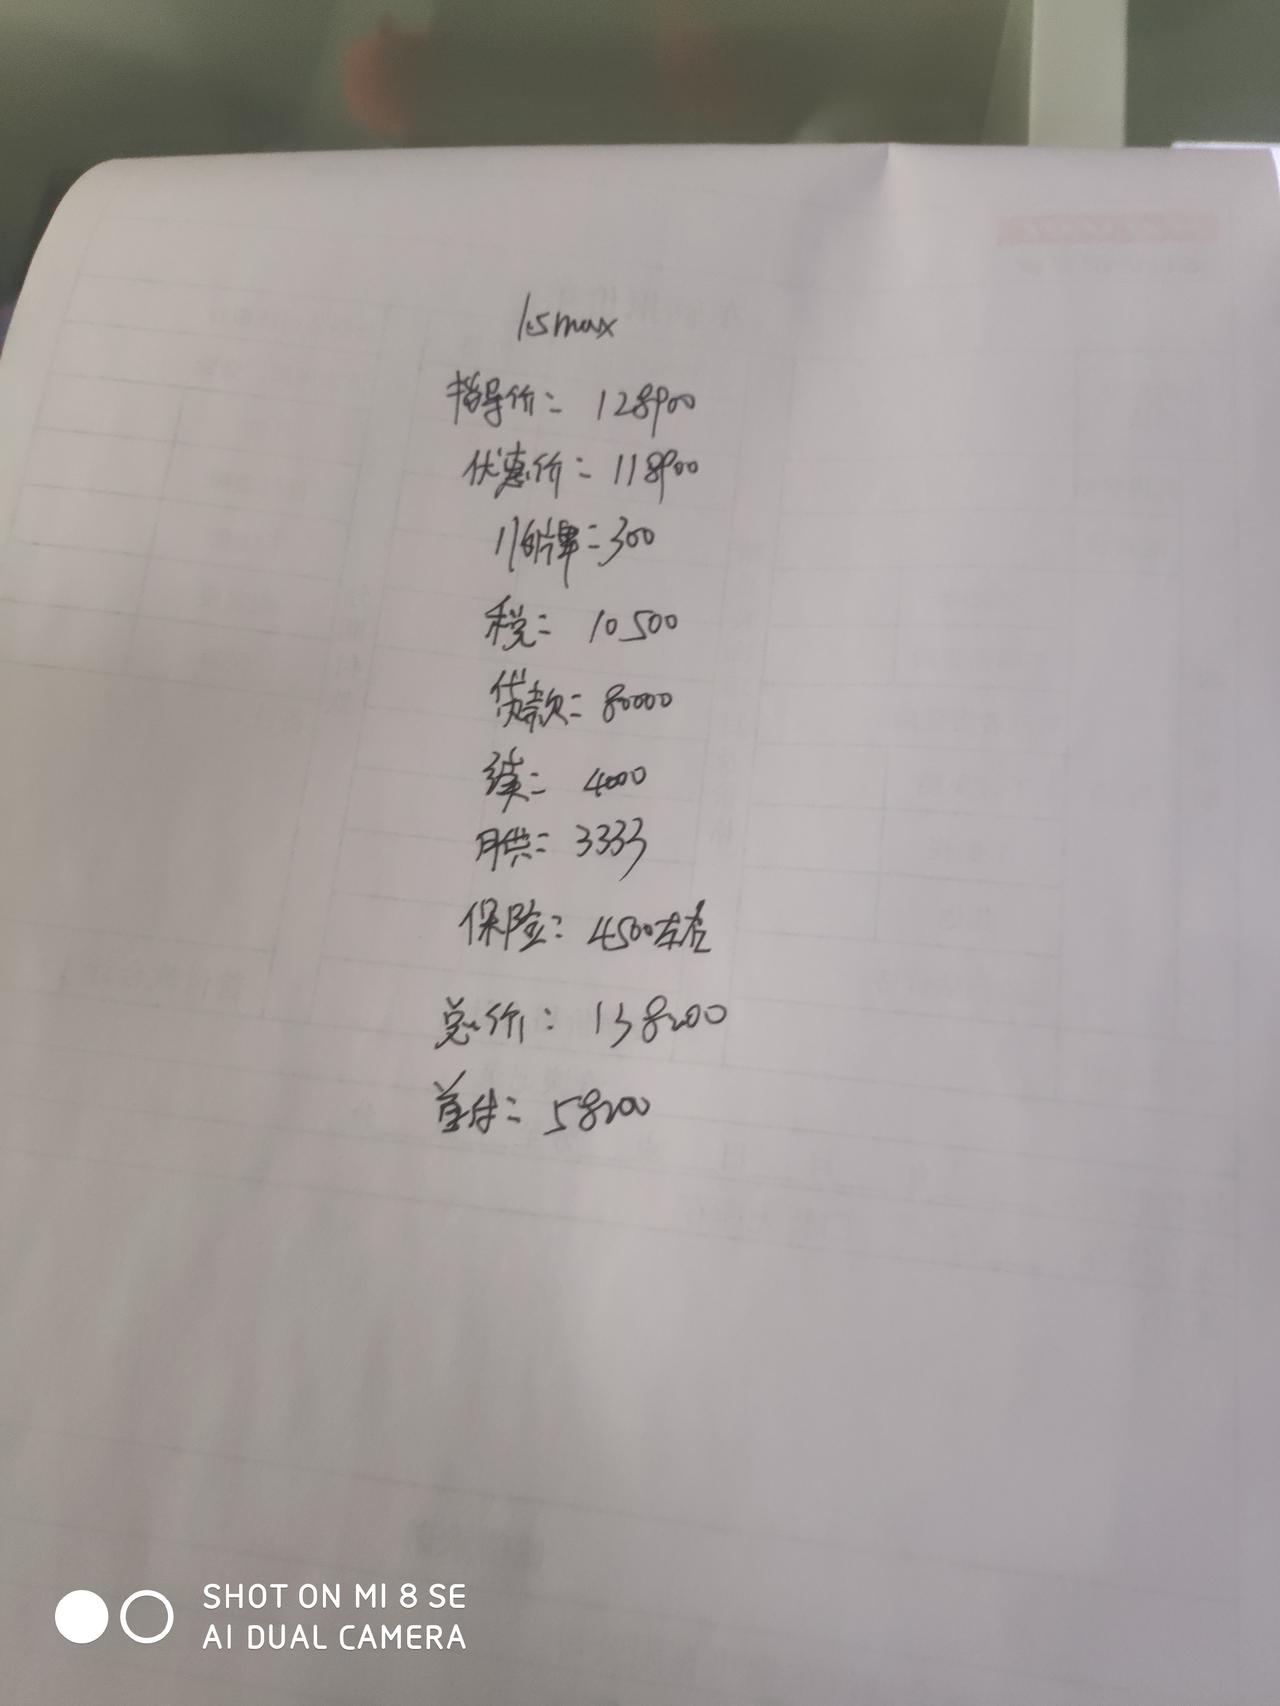 1.5max
指导价：128900
优惠价：118900
川临牌：300
税：10500
贷款：80000
续：4000
月供：3333
保险：4500左右
总价：138200
首付：58200
SHOT ON MI 8 SE
AI DUAL CAMERA